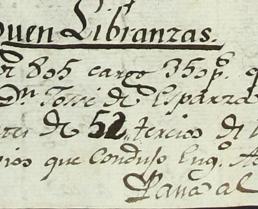 uen Libranzas.
805 cargo 350p.
Dn. José de Esparza
de 52 tercios de
que Conduso Eug.
al